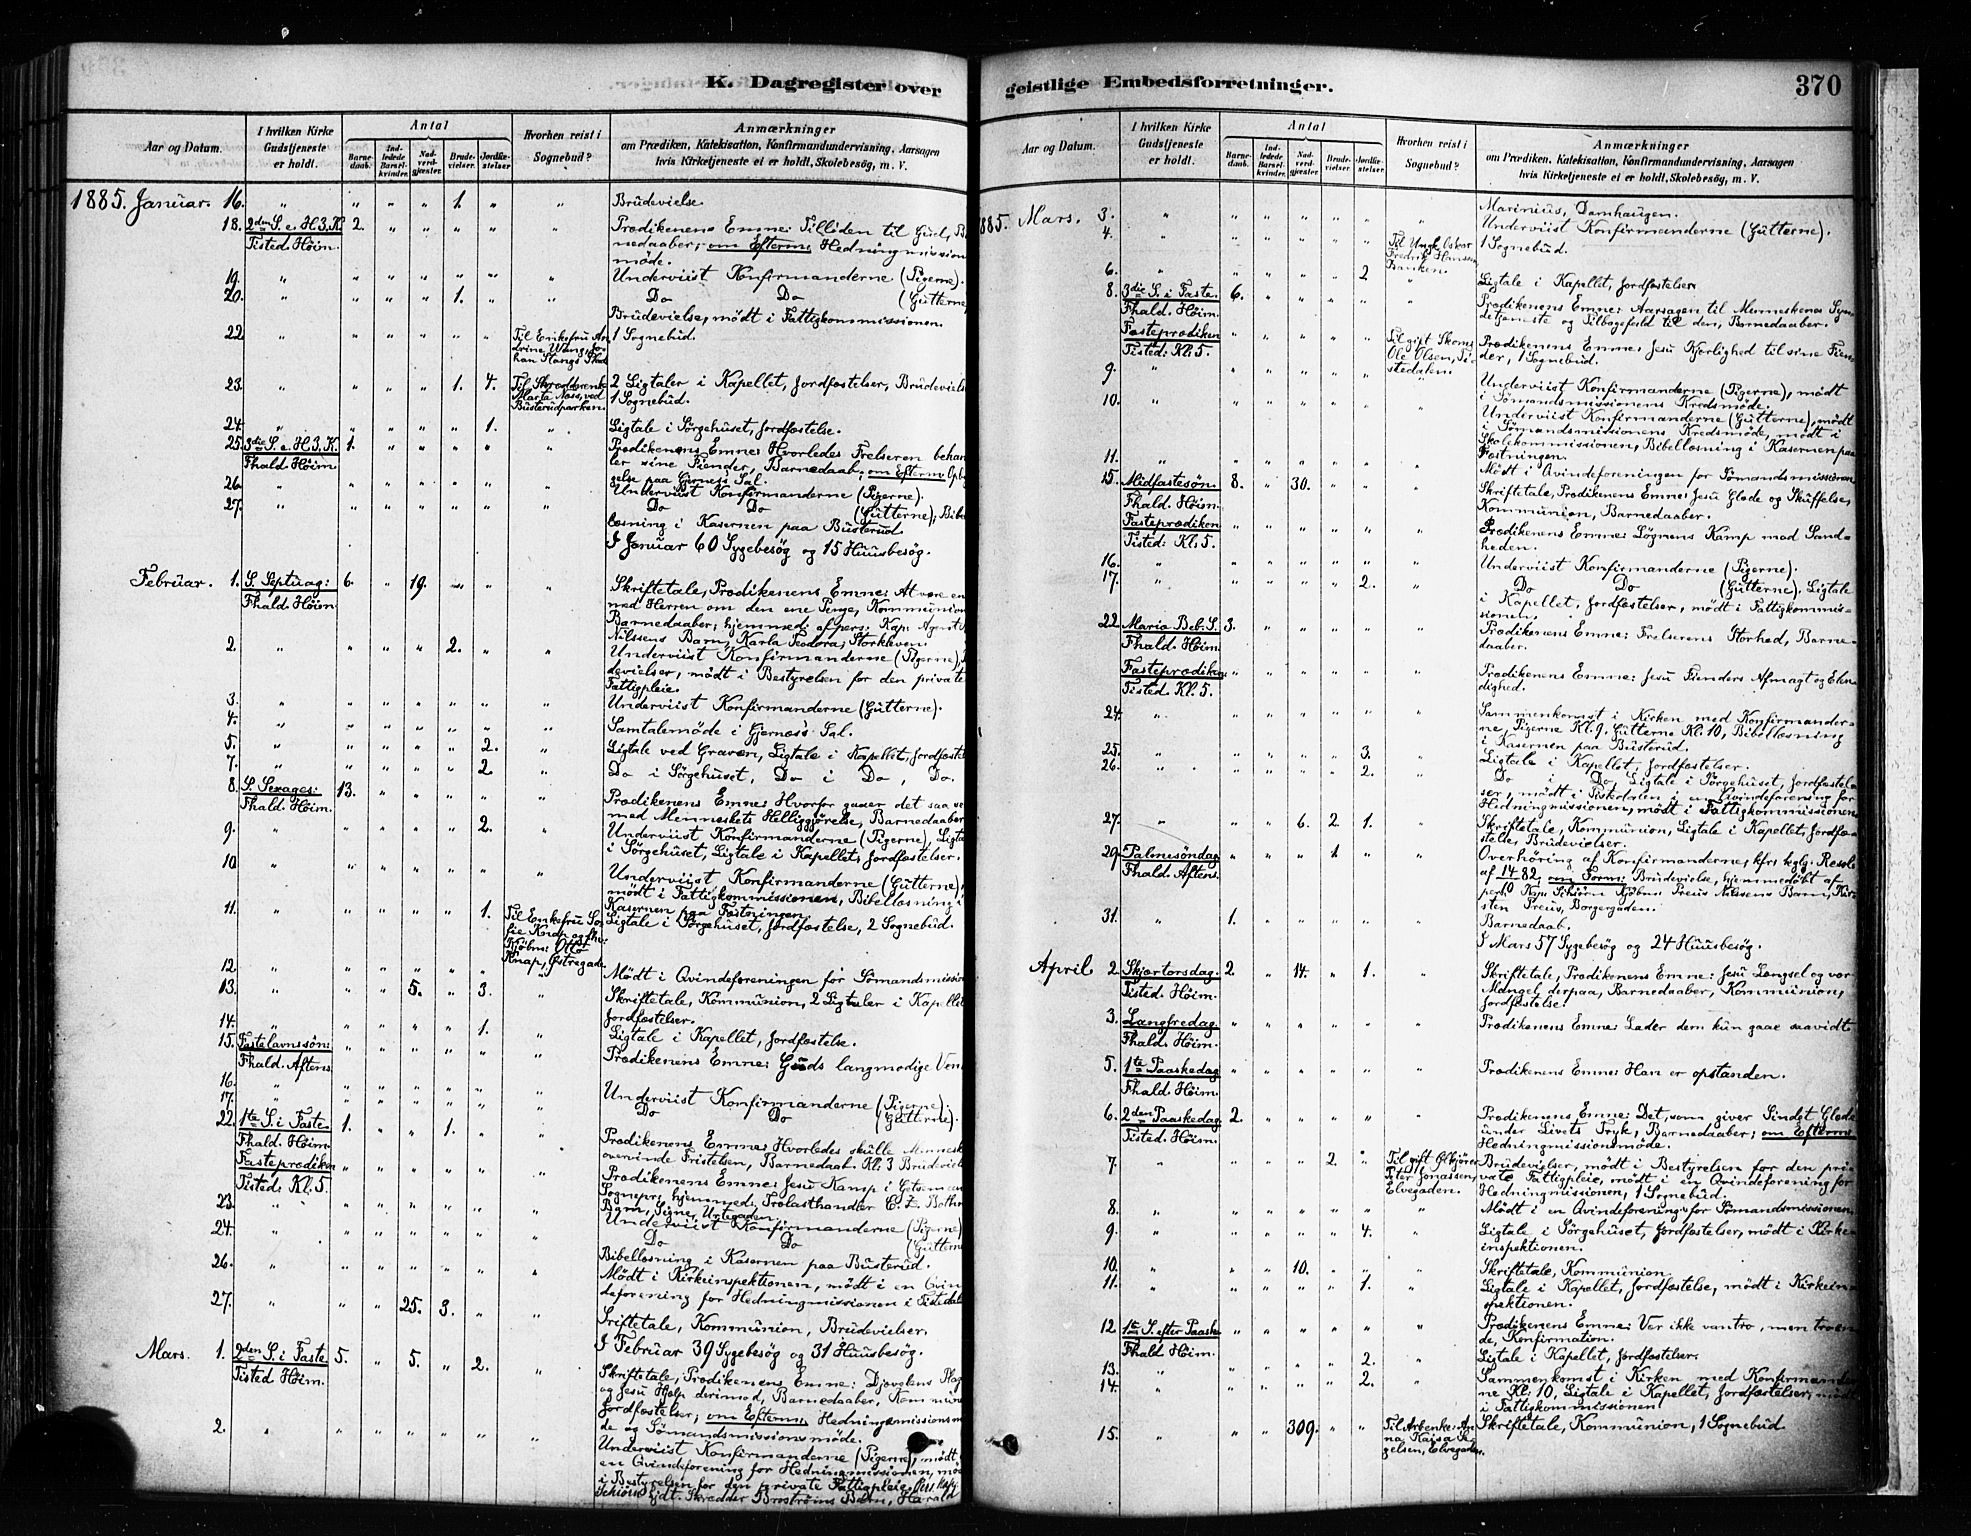 K. Dagregister over
geistlige Embedsforretninger.
370
Aar og Datum.
I hvilken Kirke Gudstjeneste er holdt.
Antal
Barnedaab.
Indledede Barselkvinder.
Nadverdgjester.
Brudevielser.
Jordfæstelser
Hvorhen reist i Sognebud?
Anmærkninger
om Prædiken, Katekisation, Konfirmandundervisning, Aarsagen
hvis Kirketjeneste ei er holdt, Skolebesøg, m. V.
1885. Januar. 16. " " " " 1. " " Brudevielse.
18. 2den S. e. H3.K. 2. " " " " " Prædikenens Emne: Tilliden til Gud,
Tisted. Höim. nedaaber; om Efterm. Hedningmission
möde.
19. " " " " " " " Underviist Konfirmanderne (Pigerne).
20. " " " " 1. " " Do Do (Gutterne
Brudevielse, mödt i Fattigkommissionen.
22. " " " " " " Til Enkefru An 1 Sognebud.
23. " " " " 1. 4. 2 Ligtaler i Kapellet, Jordfæstelser, Brudeviels
Marta Næss, ved 1 Sognebud.
Busterudparken.
24. " " " " " 1. " Ligtale i Sörgehuset, Jordfæstelse.
25. 3die S. e. H3.K. 1. " " " " " Prædikenens Emne: Hvorledes Frelseren behan
Fhald. Höim ler sine Fiender, Barnedaab; om Efterm. Opb
gelse paa Gjerness Sal.
26. " " " " " " " Underviist Konfirmanderne (Pigerne).
27. " " " " " " " Do Do (Gutterne); Bibe
læsning i Kasernen paa Busterud.
I Januar 60 Sygebesög og 15 Huusbesög.
Februar. 1. S. Septuag: 6. " 19. " " Skriftetale, Prædikenens Emne: At være en
Fhald. Höim med Herren om den ene Penge, Kommunion
Barnedaaber; hjemmed: af pers. Kap:
Nilssens Barn, Karla Teodora, Storkleven.
2. " " " " 2. " " Underviist Konfirmanderne (Pigerne),
devielser, mödt i Bestyrelsen for den private
Fattigpleie.
3. " " " " " " " Underviist Konfirmanderne (Gutterne).
4. " " " " " " Samtalemöde i Gjerness Sal.
5. " " " " " 2. " Ligtale ved Graven, Ligtale i Kapellet, Jordfæste
7. " " " " " 2. " Do i Sörgehuset, Do i Do, Do.
8. S. Sexages: 13. " " " " " Prædikenens Emne: Hvorfor gaaer det saa
Fhald. Höim. med Menneskets Helliggjörelse, Barnedaaber
9. " " " " " 2. " Underviist Konfirmanderne (Pigerne), Ligta
i Sörgehuset, Ligtale i Kapellet, Jordfæstelser.
10. " " " " " " " Underviist Konfirmanderne (Gutterne),
mödt i Fattigkommissionen, Bibellæsning i
Kasernen paa Fæstningen.
11. " " " " " 1. Til Enkefru So Ligtale i Sörgehuset, Jordfæstelse, 2 Sognebud.
fie Knap og fhv:
Kjöbm: Otto
Knap, Östregade.
12. " " " " " " " Mödt i Qvindeforeningen for Sömandsmission
13. " " " 5. " 3. " Skriftetale, Kommunion, 2 Ligtaler i Kapellet
Jordfæstelser.
14. " " " " " 1. " Ligtale i Kapellet, Jordfæstelse.
15. Fastelavnssön: " " " " " " Prædikenens Emne: Guds langmodige Ven
Fhald. Aftens
16. " " " " " " " Underviist Konfirmanderne (Pigerne).
17. " " " " " " " Do Do (Gutterne).
22. 1ste S. i Faste 1. " " 1. " " Prædikenens Emne: Hvorledes skulle Mennesk
Fhald. Höim. overvinde Fristelsen, Barnedaab. Kl. 3 Brudeviel
Fasteprædiken " " " " " " Prædikenens Emne: Jesu Kamp i Getseman
Tisted: Kl. 5.
Sognepr: hjemmed: Trælasthandler
Barn, Signe, Urtegaden.
23. " " " " " " " Underviist Konfirmanderne (Pigerne)
24. " " " " " " " Do Do (Gutterne
Bibellæsning i Kasernen paa Busterud.
26. " " " " " " " Mödt i Kirkeinspektionen, mödt i en Qvin
deforening for Hedningmissionen i Tistedal
27. " " " 25. 3. " " Skriftetale, Kommunion, Brudevielser.
I Februar 39 Sygebesög og 31 Huusbesög.
Mars. 1. 2den S. i Faste 5. " 5. " 2. " Skriftetale, Prædikenens Emne: Djævelens Plag
Tisted Höim. og Jesu Hjelp derimod, Barnedaaber, Kommuni
Jordfæstelser; om Efterm. Hedningmissionsmö
de og Sömandsmissionsmöde.
2. " " " " " " " Underviist Konfirmanderne (Pigerne), mödt i
en Qvindeforening for Hedningmissionen, mö
i Bestyrelsen for den private Fattigpleie.
hjdt. Skrædder Broströms Barn, Harald
Marinius, Damhaugen.
1885. Mars. 3. " " " " " " " Underviist Konfirmanderne (Gutterne).
4. " " " " " " Til Ungk. Oskar 1 Sognebud.
Fredrik Hansen,
Banken.
6. " " " " " 2 " Ligtale i Kapellet, Jordfæstelser.
8. 3die S. i Faste. 6. " " " " " Prædikenens Emne: Aarsagen til Menneskenes Syn
Fhald. Höim. detjeneste og Tilbagefald til den, Barnedaaber.
Fasteprædiken " " " " " Til gift Skom: Prædikenens Emne: Jesu Kjærlighed til sine Fien
Tisted: Kl. 5. Ole Olsen, Ti der, 1 Sognebud.
stedalen.
9. " " " " " " " Underviist Konfirmanderne (Pigerne), mödt
i Sömandsmissionens Kredsmöde.
10. " " " " " " " Underviist Konfirmanderne (Gutterne), mödt
i Sömandsmissionens Kredsmöde, mödt i
Skolekommissionen, Bibellæsning i Kasernen paa
Fæstningen.
11. " " " " " " " Mödt i Qvindeforeningen for Sömandsmissionen
15. Midfastesön. 8. " 30. " " " Skriftetale, Prædikenens Emne: Jesu Glæde og Skuffelse,
Fhald. Höim. Kommunion, Barnedaaber.
Fasteprædiken " " " " " " Prædikenens Emne: Lögnens Kamp mod Sand=
Tisted: Kl. 5. heden.
16. " " " " " " " Underviist Konfirmanderne (Pigerne).
17. " " " " " 2. " Do Do (Gutterne), Ligtale
i Kapellet, Jordfæstelser, mödt i Fattigkommis=
sionen.
22. Maria Beb. S. 3. " " " " " Prædikenens Emne: Frelserens Storhed, Barne=
Fhald. Höim. daaber.
Fasteprædiken " " " " " " Prædikenens Emne: Jesu Fienders Afmagt og Elen
Tisted Kl. 5. dighed.
24. " " " " " " " Sammenkomst i Kirken med Konfirmander=
ne, Pigerne Kl. 9, Gutterne Kl. 10, Bibellæsning
i Kasernen paa Busterud.
25. " " " " " 3. " Ligtale i Kapellet, Jordfæstelser.
26. " " " " " 2. " Do i Do, Ligtale i Sörgehuset, Jordfæstel=
ser, mödt i Tistedalen i en Qvindeforening for
Hedningmissionen, mödt i Fattigkommissionen
27. " " " 6. 2. 1. " Skriftetale, Kommunion, Ligtale i Kapellet, Jordfæ=
stelse, Brudevielser.
29. Palmesöndag " " " 1. " " Overhöring af Konfirmanderne, kfr. kglg. Resol:
Fhald. Aftens. af 14 82, om Form: Brudevielse, hjemmedöbt af
sten Preus, Borgergaden.
31. " 1. " " " " " Barnedaab.
I Mars 57 Sygebesög og 24 Huusbesög.
April 2. Skjærtorsdag. 2 " 14. " 1. " Skriftetale, Prædikenens Emne: Jesu Længsel og vor
Tisted. Höim. Mangel derpaa, Barnedaaber, Kommunion,
Jordfæstelse.
3. Langfredag. " " " " " " Prædikenens Emne: Lader dem kun gaae saavidt
Fhald. Höim.
5. 1ste Paaskedag " " " " " " Prædikenens Emne: Han er opstanden.
Fhald. Höim.
6. 2den Paaskedag 2. " " " " Prædikenens Emne: Det, som giver Sindet Glæde
Tisted. Höim. under Livets Tryk, Barnedaaber; om Efterm.
Hedningmissionsmöde.
7. " " " " 2. " Til gift Ölkjörer Brudevielser, mödt i Bestyrelsen for den pri=
Peter Jonassen, vate Fattigpleie, mödt i en Qvindeforening for
Elvegaden. Hedningmissionen, 1 Sognebud.
8. " " " " " " " Mödt i en Qvindeforening for Sömandsmissionen.
9. " " " " " 4. " Ligtale i Sörgehuset, Jordfæstelser, mödt i Kirke=
inspektionen.
10. " " " 10. " " " Skriftetale, Kommunion.
11. " " " " " 1. " Ligtale i Kapellet, Jordfæstelse, mödt i Kirkein=
spektionen.
12. 1ste S. efter Paaske " " " " " " Prædikenens Emne: Vær ikke vantro, men troen
Fhald Höim. de, Konfirmation.
13. " " " " " 2. " Ligtale i Kapellet, Jordfæstelser.
14. " " " " " 2. " Sammenkomst i Kirken med Konfirmander
ne Kl: 10, Ligtale i Kapellet, Jordfæstelser, mödt
i Fattigkommissionen.
15. " " " 309. " " Til Arbenke: An Skriftetale, Kommunion, 1 Sognebud
na Kaisa Se
gelsen, Elvegaden.